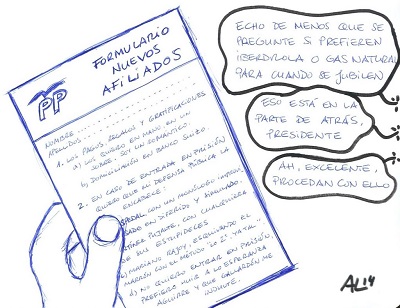 FORMULARIO
NUEVOS
AFILIADOS
PP
NOMBRE
APELLIDOS
1. LOS PAGOS, REGALOS Y GRATIFICACIONES
a) LOS QUIERO EN MANO, EN UN
SOBRE, SOY UN
b) DOMICILIACIÓN EN BANCO SUIZO.
2. EN CASO DE ENTRADA EN PRISIÓN
QUIERO QUE MI DEFENSA PÚBLICA LA
ENCABECE:
CON UN MONÓLOGO
EN DIFERIDO Y
PUJANTE, CON CUALQUIERA
DE SUS ESTUPIDECES
c) MARIANO RAJOY, ESQUIVANDO EL
MARRÓN CON EL MÉTODO
d) NO QUIERO ENTRAR EN PRISIÓN,
PREFIERO HUIR A LO ESPERANZA
AGUIRRE Y QUE GALLARDÓN ME
INDULTE.
ECHO DE MENOS QUE SE
PREGUNTE SI PREFIEREN
IBERDROLA O GAS NATURAL
PARA CUANDO SE JUBILEN
ESO ESTÁ EN LA
PARTE DE ATRÁS,
PRESIDENTE
AH, EXCELENTE,
PROCEDAN CON ELLO
AL14